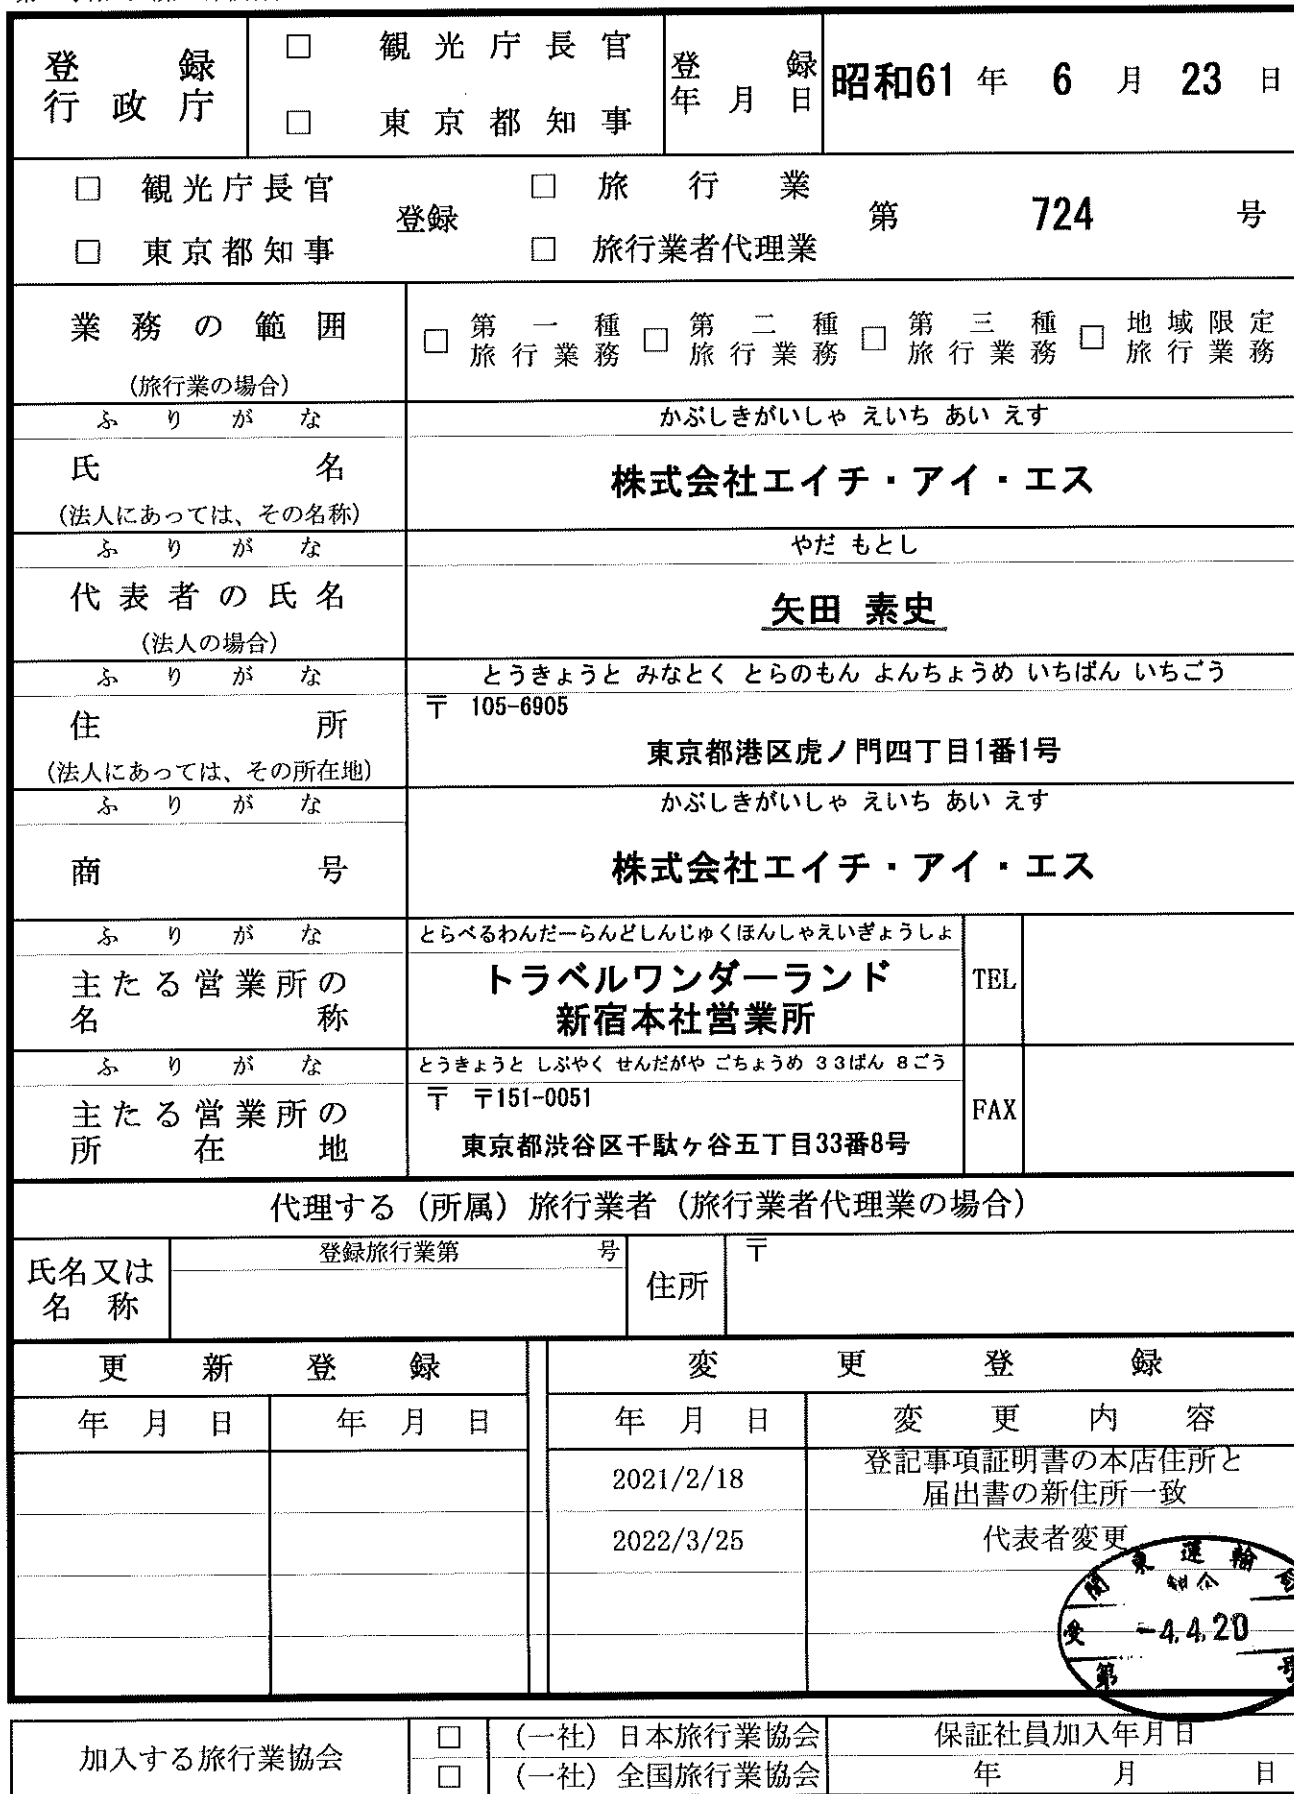 登録行政庁
□ 観光庁長官
□ 東京都知事
登録年月日
昭和61 年 6 月 23 日
□ 観光庁長官
□ 東京都知事
登録
□ 旅行業
□ 旅行業者代理業
第 724 号
業務の範囲
(旅行業の場合)
□ 第一種旅行業務 □ 第二種旅行業務 □ 第三種旅行業務 □ 地域限定旅行業務
ふりがな
かぶしきがいしゃ えいち あい えす
氏名
(法人にあっては、その名称)
株式会社エイチ・アイ・エス
ふりがな
やだ もとし
代表者の氏名
(法人の場合)
矢田 素史
ふりがな
とうきょうと みなとく とらのもん よんちょうめ いちばん いちごう
住所
(法人にあっては、その所在地)
〒 105-6905
東京都港区虎ノ門四丁目1番1号
ふりがな
かぶしきがいしゃ えいち あい えす
商号
株式会社エイチ・アイ・エス
ふりがな
とらべるわんだーらんどしんじゅくほんしゃえいぎょうしょ
主たる営業所の
名称
トラベルワンダーランド
新宿本社営業所
TEL
ふりがな
とうきょうと しぶやく せんだがや ごちょうめ 33ばん 8ごう
主たる営業所の
所在地
〒 〒151-0051
東京都渋谷区千駄ヶ谷五丁目33番8号
FAX
代理する(所属)旅行業者(旅行業者代理業の場合)
氏名又は
名称
登録旅行業第 号
住所
〒
更新登録
変更登録
年月日
年月日
年月日
変更内容
2021/2/18
登記事項証明書の本店住所と
届出書の新住所一致
2022/3/25
代表者変更
関東運輸
受
-4.4.20
第 号
加入する旅行業協会
□ (一社)日本旅行業協会
□ (一社)全国旅行業協会
保証社員加入年月日
年 月 日